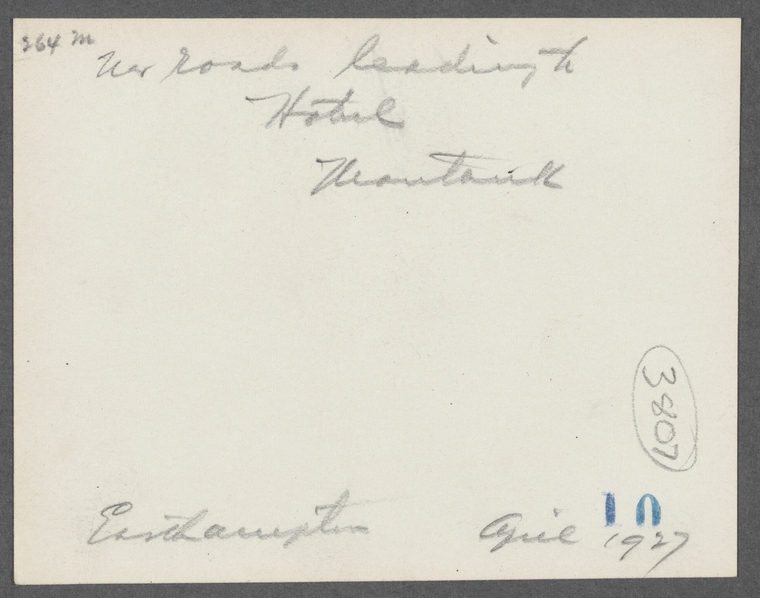 264 M
New roads leading to
Hotel
Montauk
3807
Easthampton April 10 1927